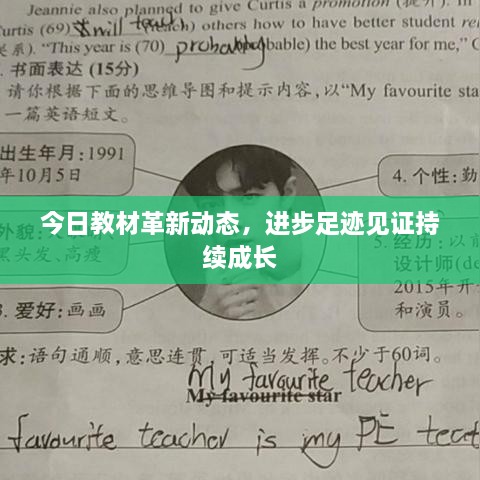 Jeannie also planned to give Curtis a promotion (提升). In
Curtis (69) will teach (teach) others how to have better student
关系). "This year is (70) probably (probable) the best year for me,"
书面表达 (15分)
请你根据下面的思维导图和提示内容,以"My favourite sta
一篇英语短文。
出生年月:1991
年10月5日
4. 个性:勤
今日教材革新动态，进步足迹见证持
续成长
外貌:
黑头发、高瘦
5. 经历:以前
设计师(de
2015年开
和演员。
3. 爱好:画画
求:语句通顺,意思连贯,可适当发挥。不少于60词。
My favourite teacher
My favourite star
favourite teacher is my PE teac